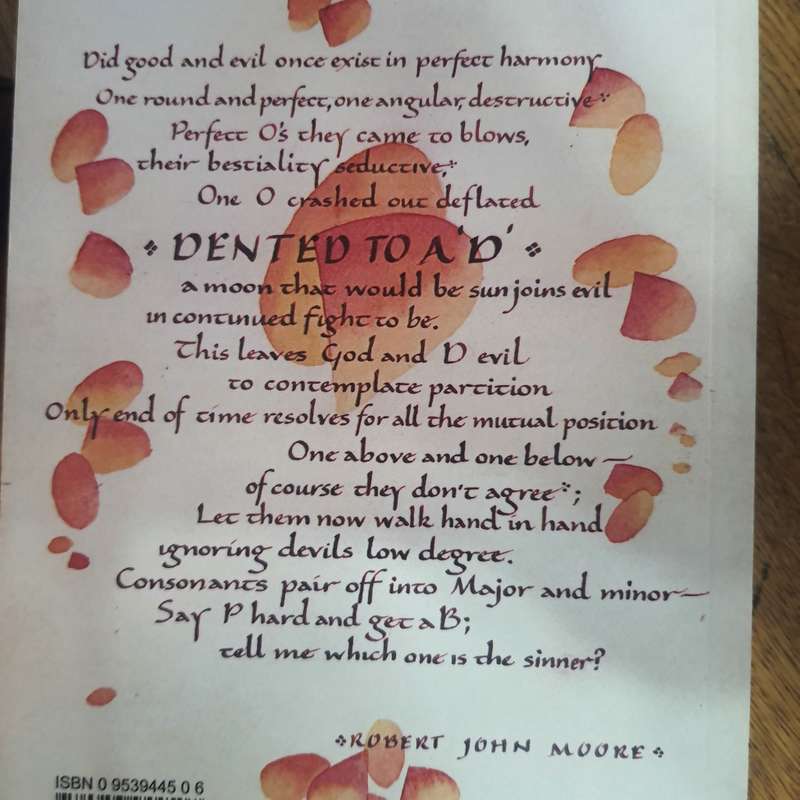 Did good and evil once exist in perfect harmony
One round and perfect, one angular, destructive
Perfect O's they came to blows,
their bestiality seductive,
One O crashed out deflated
DENTED TO A 'D'
a moon that would be sun joins evil
in continued fight to be.
This leaves God and D evil
to contemplate partition
Only end of time resolves for all the mutual position
One above and one below —
of course they don't agree ;
Let them now walk hand in hand
ignoring devils low degree.
Consonants pair off into Major and minor—
Say P hard and get a B;
tell me which one is the sinner?
ROBERT JOHN MOORE
ISBN 0 9539445 0 6